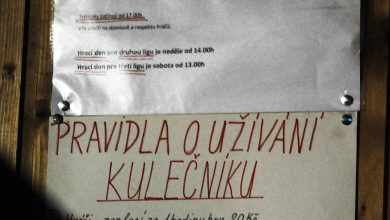 Tréninky začínají od 17.00h.
Vše závisí na domluvě a respektu hráčů.
Hrací den pro druhou ligu je neděle od 14.00h
Hrací den pro třetí ligu je sobota od 13.00h
PRAVIDLA O UŽÍVÁNÍ
KULEČNÍKU
zaplatí za 1hodinu hry 80 Kč